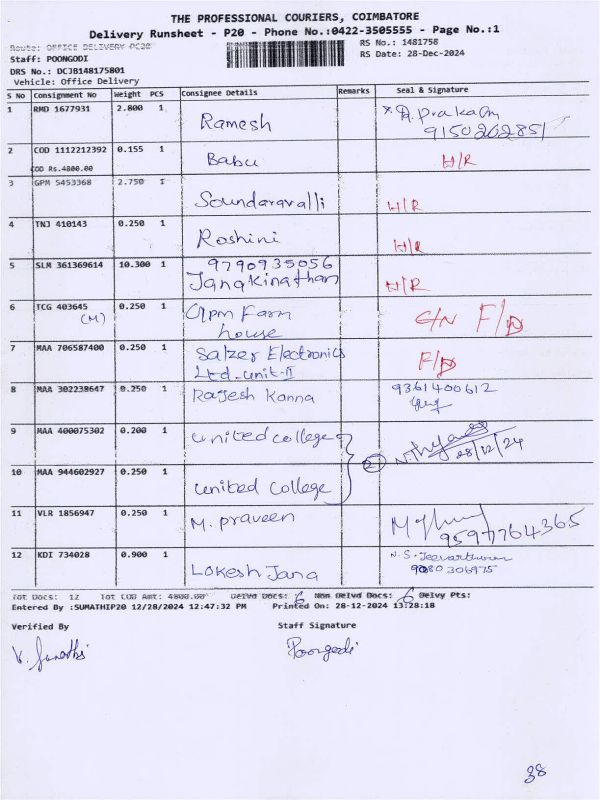 THE PROFESSIONAL COURIERS, COIMBATORE
Delivery Runsheet - P20 - Phone No.:0422-3505555 - Page No.:1
Route: OFFICE DELIVERY PC20
RS No.: 1481758
Staff: POONGODI
RS Date: 28-Dec-2024
DRS No.: DCJB148175801
Vehicle: Office Delivery
S No Consignment No Weight PCS Consignee Details Remarks Seal & Signature
1 RMD 1677931 2.800 1 Ramesh
9150202851
2 COD 1112212392 0.155 1 Babu H/R
COD Rs.4800.00
3 GPM 5453368 2.750 1 Soundaravalli H/R
4 TNJ 410143 0.250 1 Roshini H/R
5 SLM 361369614 10.300 1 9790935056
Janakinathan H/R
6 TCG 403645 0.250 1 Farm
(M) house C/N F/D
7 MAA 706587400 0.250 1 Salzer Electronics
Ltd-unit-II F/D
8 MAA 302238647 0.250 1 Rajesh Kanna 9361400612
9 MAA 400075302 0.200 1 united college
2 28/12/24
10 MAA 944602927 0.250 1 united college
11 VLR 1856947 0.250 1 M. praveen
9597764365
12 KDI 734028 0.900 1 Lokesh Jana
9080306975
Tot Docs: 12 Tot COD Amt: 4800.00 Delvd Docs: 6 Non Delvd Docs: 6 Delvy Pts:
Entered By :SUMATHIP20 12/28/2024 12:47:32 PM Printed On: 28-12-2024 13:28:18
Verified By Staff Signature
Poongodi
38